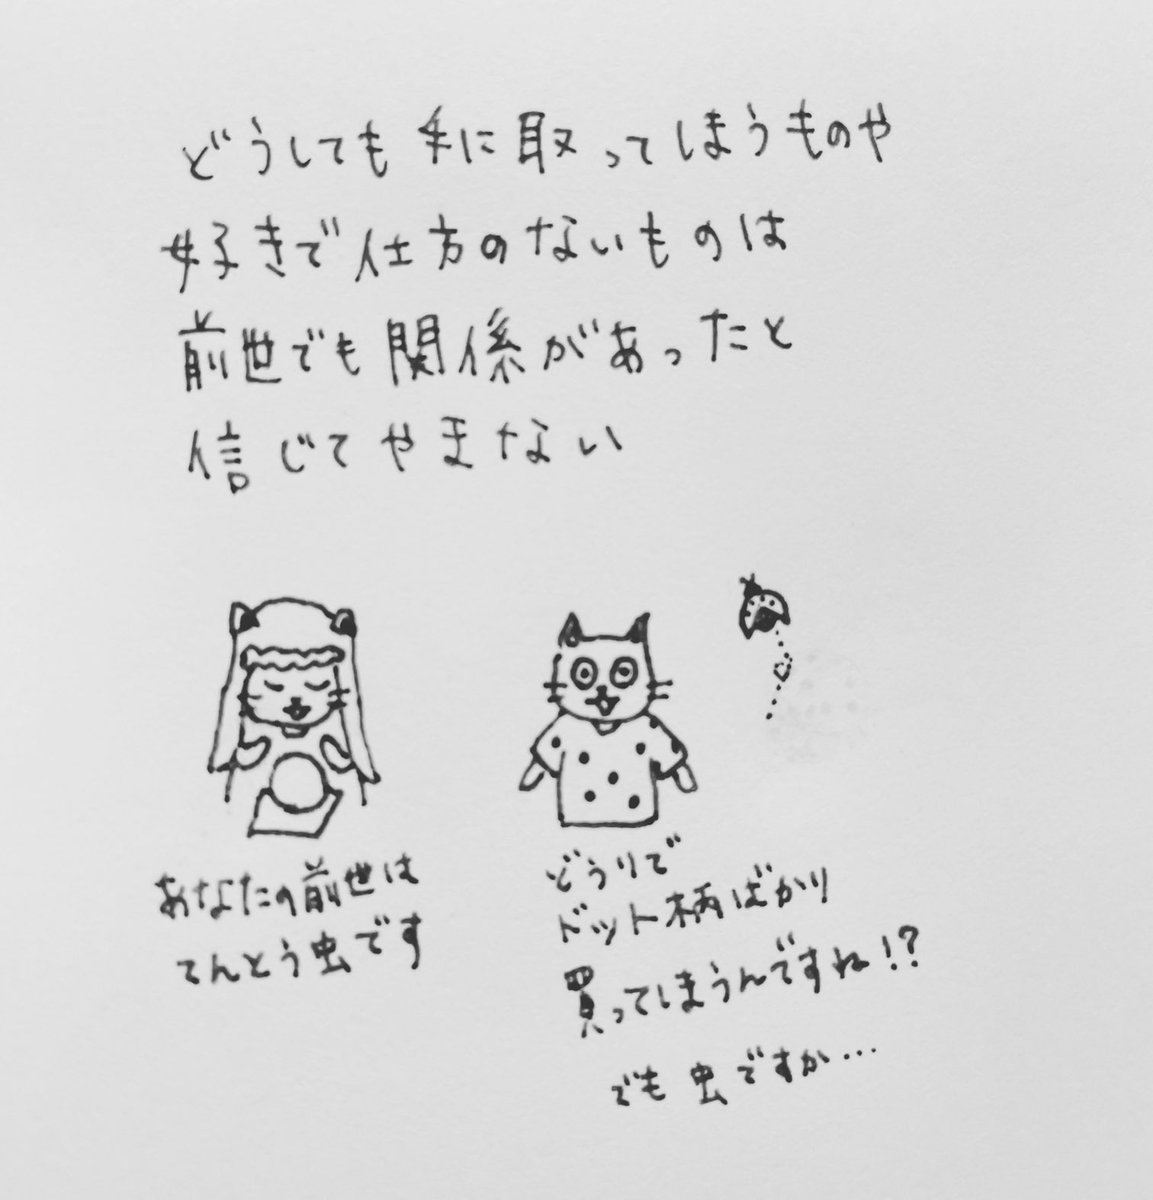 どうしても手に取ってしまうものや
好きで仕方のないものは
前世でも関係があったと
信じてやまない
あなたの前世は
てんとう虫です
どうりで
ドット柄ばかり
買ってしまうんですね!?
でも虫ですか…